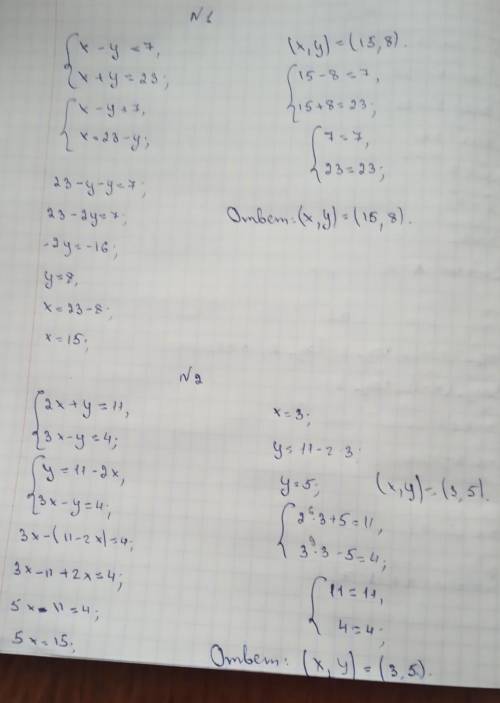 №1
x - y = 7,
x + y = 23;
x - y = 7,
x = 23 - y;
23 - y - y = 7;
23 - 2y = 7;
-2y = -16;
y = 8,
x = 23 - 8;
x = 15;
(x, y) = (15, 8).
15 - 8 = 7,
15 + 8 = 23;
7 = 7,
23 = 23;
Ответ: (x, y) = (15, 8).
№2
2x + y = 11,
3x - y = 4;
y = 11 - 2x,
3x - y = 4;
3x - (11 - 2x) = 4;
3x - 11 + 2x = 4;
5x - 11 = 4;
5x = 15;
x = 3;
y = 11 - 2 · 3;
y = 5;
(x, y) = (3, 5).
6
2 · 3 + 5 = 11,
9
3 · 3 - 5 = 4;
11 = 11,
4 = 4;
Ответ: (x, y) = (3, 5).